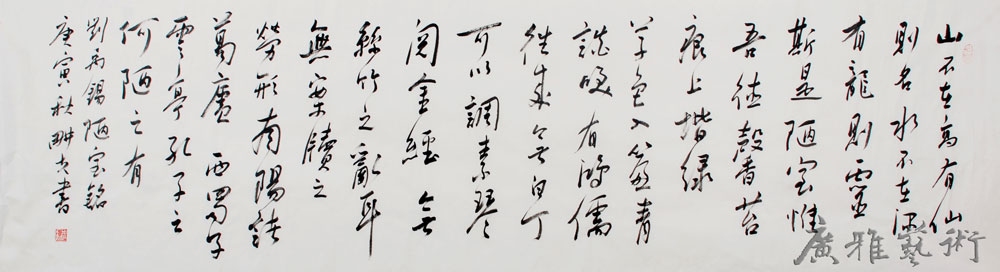 山不在高有仙
則名水不在深
有龍則靈
斯是陋室惟
吾德馨苔
痕上堦綠
草色入簾青
談咲有鴻儒
往來無白丁
可以調素琴
閱金經無
絲竹之亂耳
無案牘之
勞形南陽諸
葛廬西蜀子
雲亭孔子云
何陋之有
劉禹錫陋室銘
庚寅秋畊夫書
廣雅藝術